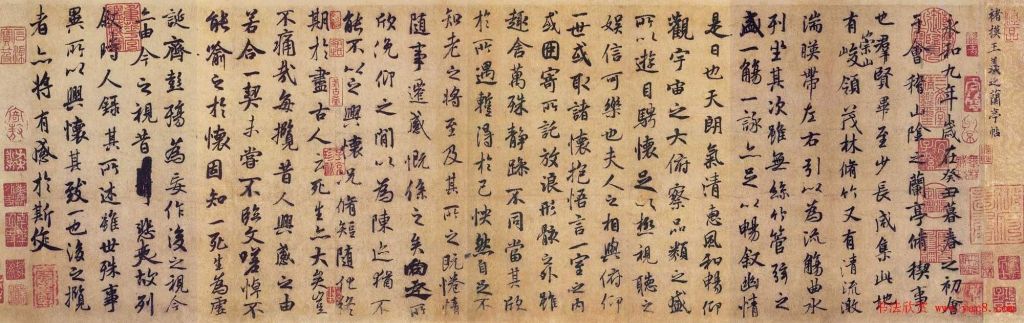 褚摸王羲之蘭亭帖
永和九年歲在癸丑暮春之初會
于會稽山陰之蘭亭脩稧事
也羣賢畢至少長咸集此地
有崇山峻領茂林脩竹又有清流激
湍暎帶左右引以為流觴曲水
列坐其次雖無絲竹管弦之
盛一觴一詠亦足以暢叙幽情
是日也天朗氣清惠風和暢仰
觀宇宙之大俯察品類之盛
所以遊目騁懷足以極視聽之
娛信可樂也夫人之相與俯仰
一世或取諸懷抱悟言一室之內
或因寄所託放浪形骸之外雖
趣舍萬殊靜躁不同當其欣
於所遇暫得於己怏然自足不
知老之將至及其所之既惓情
隨事遷感慨係之矣向之所
欣俛仰之間以為陳迹猶不
能不以之興懷況脩短隨化終
期於盡古人云死生亦大矣豈
不痛哉每攬昔人興感之由
若合一契未嘗不臨文嗟悼不
能喻之於懷固知一死生為虛
誕齊彭殤為妄作後之視今
亦由今之視昔悲夫故列
叙時人錄其所述雖世殊事
異所以興懷其致一也後之攬
者亦將有感於斯文
书法欣赏 www.yac8.com